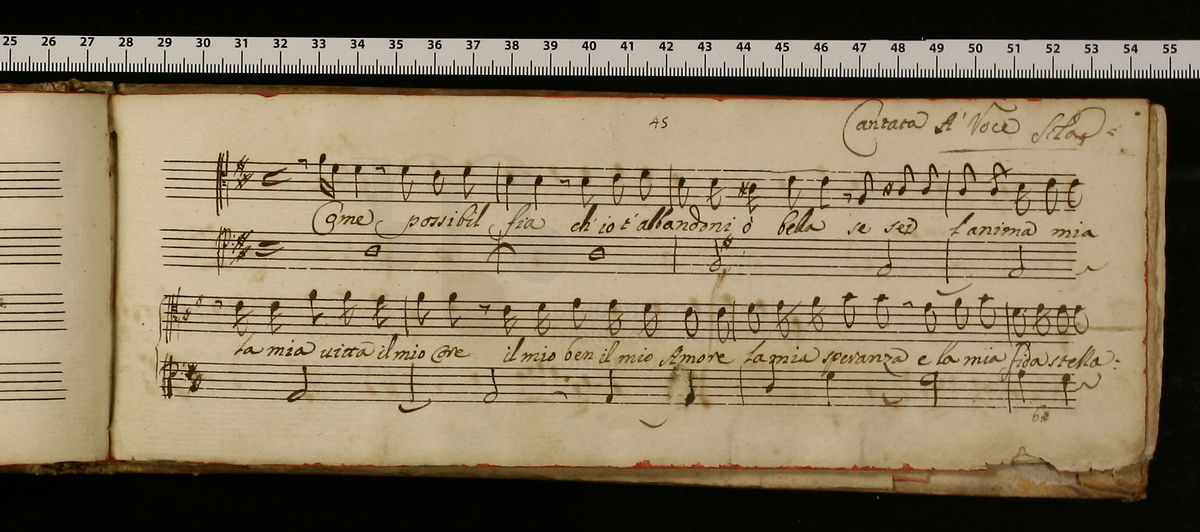 25 26 27 28 29 30 31 32 33 34 35 36 37 38 39 40 41 42 43 44 45 46 47 48 49 50 51 52 53 54 55
45
Cantata A' Voce Sola
Come possibil fia ch'io t'abbandoni ò bella se sei l'anima mia
la mia uitta il mio Core il mio ben il mio Amore la mia speranza e la mia fida stella:
6#